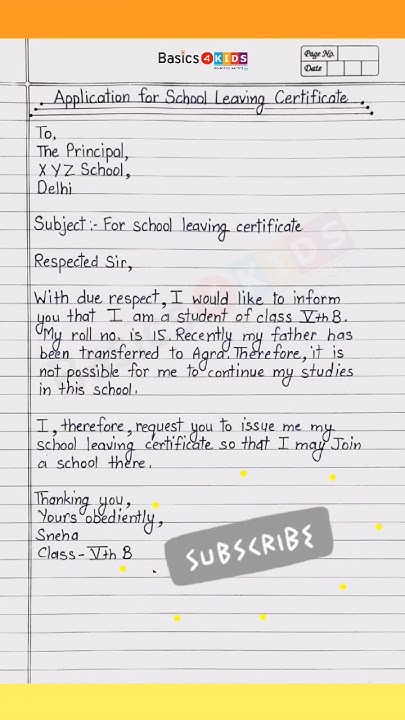 Basics 4 KIDS
Page No.
Date
Application for School Leaving Certificate
To,
The Principal,
X Y Z School,
Delhi
Subject:- For school leaving certificate
Respected Sir,
With due respect, I would like to inform
you that I am a student of class Vth B.
My roll no. is 15. Recently my father has
been transferred to Agra. Therefore, it is
not possible for me to continue my studies
in this school.
I, therefore, request you to issue me my
school leaving certificate so that I may Join
a school there.
Thanking you,
Yours obediently,
Sneha
Class - Vth B
SUBSCRIBE